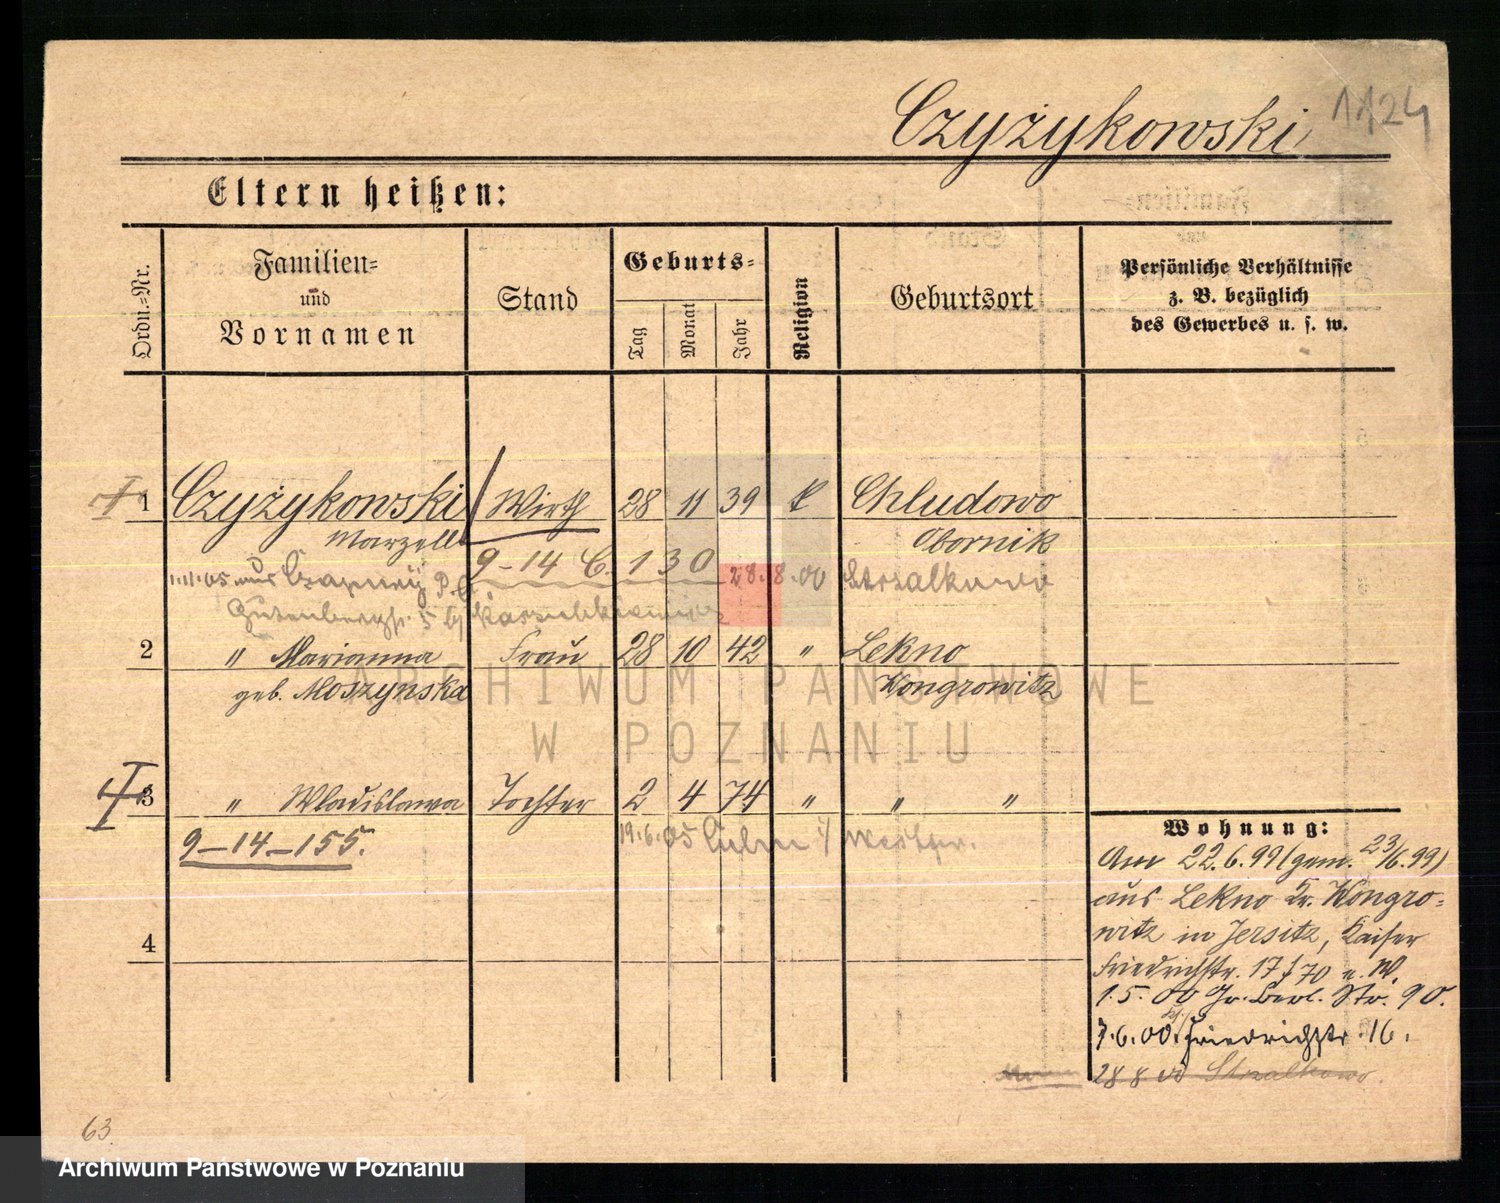 Czyżykowski
1124
Eltern heißen:
Ordn.=Nr.
Familien=
und
Vornamen
Stand
Geburts=
Tag
Monat
Jahr
Religion
Geburtsort
Persönliche Verhältnisse
z. B. bezüglich
des Gewerbes u. s. w.
1 Czyżykowski Wirth 28 11 39 k Chludowo
Marzell Obornik
9-14 C. 130 28.8.00 Strzalkowo
1.11.05 aus
Gutenbergstr. 5
2 " Marianna Frau 28 10 42 " Lekno
geb. Moszynska Wongrowitz
ARCHIWUM PAŃSTWOWE
W POZNANIU
3 " Wladislawa Tochter 2 4 74 " " "
9-14-155. 19.6.05 Culm i/ Westpr.
4
Wohnung:
Am 22.6.99 (gem. 23/6.99)
aus Lekno Kr. Wongro=
witz in Jersitz, Kaiser
Friedrichstr. 17 f 70 u. W.
1.5.00 Gr. Berl. Str. 90.
7.6.00. Friedrichstr. 16.
28 8 00 Strzalkowo.
63
Archiwum Państwowe w Poznaniu